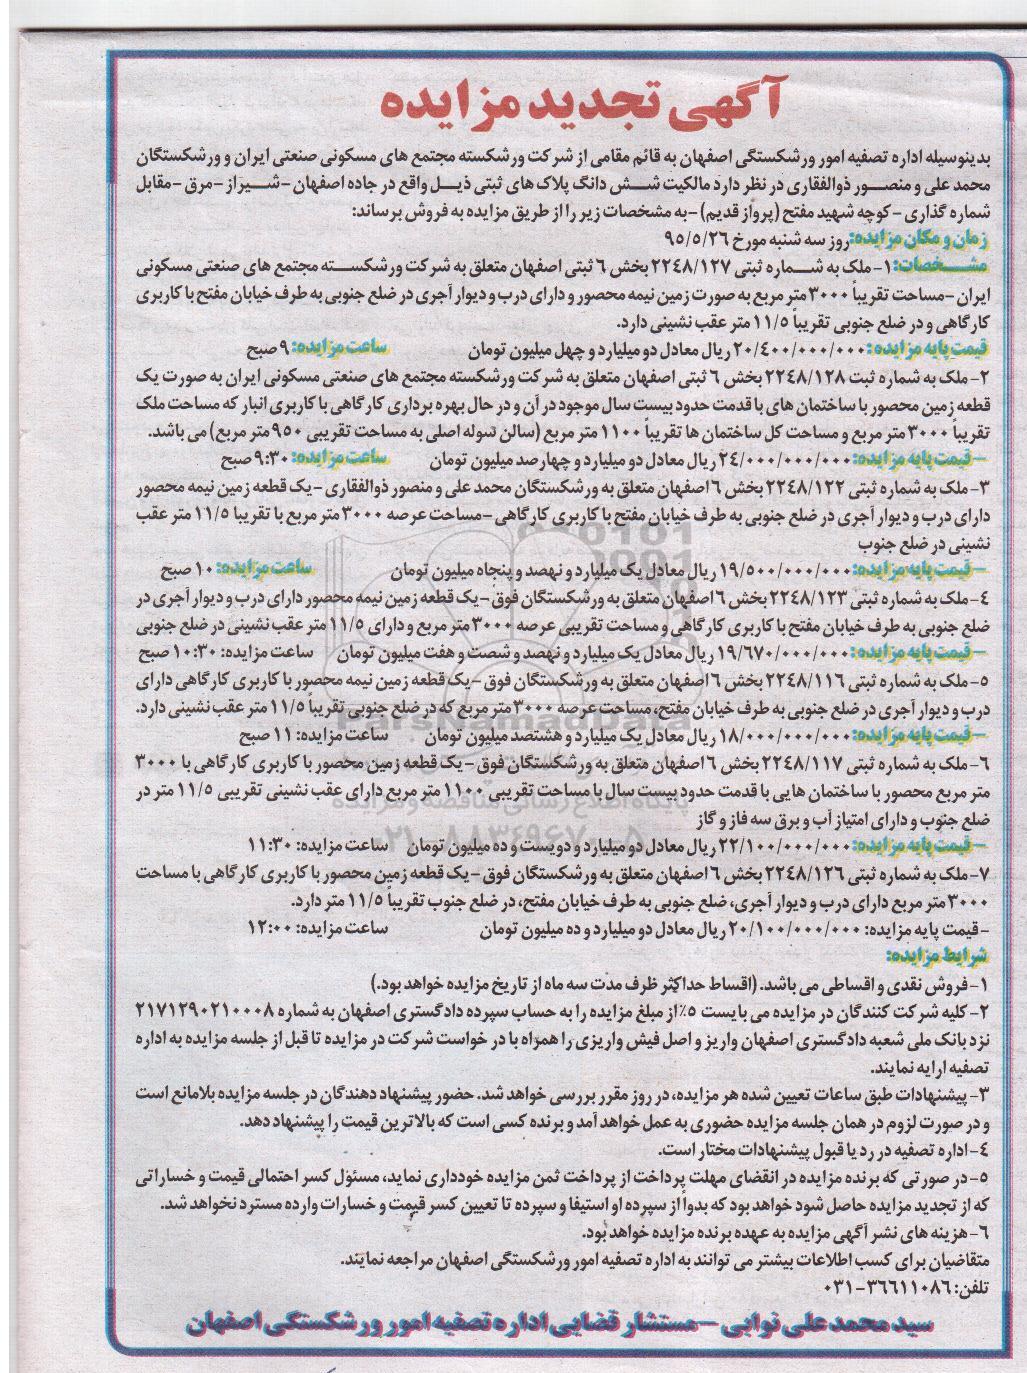 آگهی تجدید مزایده
بدینوسیله اداره تصفیه امور ورشکستگی اصفهان به قائم مقامی از شرکت ورشکسته مجتمع های مسکونی صنعتی ایران و ورشکستگان
محمد علی و منصور ذوالفقاری در نظر دارد مالکیت شش دانگ پلاک های ثبتی ذیل واقع در جاده اصفهان - شیراز - مرق - مقابل
شماره گذاری - کوچه شهید مفتح (پرواز قدیم) - به مشخصات زیر را از طریق مزایده به فروش برساند:
زمان و مکان مزایده: روز سه شنبه مورخ ۹۵/۵/۲۶
مشخصات: ۱- ملک به شماره ثبتی ۲۲۴۸/۱۲۷ بخش ۶ ثبتی اصفهان متعلق به شرکت ورشکسته مجتمع های صنعتی مسکونی
ایران - مساحت تقریباً ۳۰۰۰ متر مربع به صورت زمین نیمه محصور و دارای درب و دیوار آجری در ضلع جنوبی به طرف خیابان مفتح با کاربری
کارگاهی و در ضلع جنوبی تقریباً ۱۱/۵ متر عقب نشینی دارد.
قیمت پایه مزایده: ۲۰/۴۰۰/۰۰۰/۰۰۰ ریال معادل دو میلیارد و چهل میلیون تومان ساعت مزایده: ۹ صبح
۲- ملک به شماره ثبت ۲۲۴۸/۱۲۸ بخش ۶ ثبتی اصفهان متعلق به شرکت ورشکسته مجتمع های صنعتی مسکونی ایران به صورت یک
قطعه زمین محصور با ساختمان های با قدمت حدود بیست سال موجود در آن و در حال بهره برداری کارگاهی با کاربری انبار که مساحت ملک
تقریباً ۳۰۰۰ متر مربع و مساحت کل ساختمان ها تقریباً ۱۱۰۰ متر مربع (سالن سوله اصلی به مساحت تقریبی ۹۵۰ متر مربع) می باشد.
- قیمت پایه مزایده: ۲۴/۰۰۰/۰۰۰/۰۰۰ ریال معادل دو میلیارد و چهارصد میلیون تومان ساعت مزایده: ۹:۳۰ صبح
۳- ملک به شماره ثبتی ۲۲۴۸/۱۲۲ بخش ۶ اصفهان متعلق به ورشکستگان محمد علی و منصور ذوالفقاری - یک قطعه زمین نیمه محصور
دارای درب و دیوار آجری در ضلع جنوبی به طرف خیابان مفتح با کاربری کارگاهی - مساحت عرصه ۳۰۰۰ متر مربع با تقریبا ۱۱/۵ متر عقب
نشینی در ضلع جنوب
- قیمت پایه مزایده: ۱۹/۵۰۰/۰۰۰/۰۰۰ ریال معادل یک میلیارد و نهصد و پنجاه میلیون تومان ساعت مزایده: ۱۰ صبح
۴- ملک به شماره ثبتی ۲۲۴۸/۱۲۳ بخش ۶ اصفهان متعلق به ورشکستگان فوق - یک قطعه زمین نیمه محصور دارای درب و دیوار آجری در
ضلع جنوبی به طرف خیابان مفتح با کاربری کارگاهی و مساحت تقریبی عرصه ۳۰۰۰ متر مربع و دارای ۱۱/۵ متر عقب نشینی در ضلع جنوبی
- قیمت پایه مزایده: ۱۹/۶۷۰/۰۰۰/۰۰۰ ریال معادل یک میلیارد و نهصد و شصت و هفت میلیون تومان ساعت مزایده: ۱۰:۳۰ صبح
۵- ملک به شماره ثبتی ۲۲۴۸/۱۱۶ بخش ۶ اصفهان متعلق به ورشکستگان فوق - یک قطعه زمین نیمه محصور با کاربری کارگاهی دارای
درب و دیوار آجری در ضلع جنوبی به طرف خیابان مفتح، مساحت عرصه ۳۰۰۰ متر مربع که در ضلع جنوبی تقریباً ۱۱/۵ متر عقب نشینی دارد.
- قیمت پایه مزایده: ۱۸/۰۰۰/۰۰۰/۰۰۰ ریال معادل یک میلیارد و هشتصد میلیون تومان ساعت مزایده: ۱۱ صبح
۶- ملک به شماره ثبتی ۲۲۴۸/۱۱۷ بخش ۶ اصفهان متعلق به ورشکستگان فوق - یک قطعه زمین محصور با کاربری کارگاهی با ۳۰۰۰
متر مربع محصور با ساختمان هایی با قدمت حدود بیست سال با مساحت تقریبی ۱۱۰۰ متر مربع دارای عقب نشینی تقریبی ۱۱/۵ متر در
ضلع جنوب و دارای امتیاز آب و برق سه فاز و گاز
- قیمت پایه مزایده: ۲۲/۱۰۰/۰۰۰/۰۰۰ ریال معادل دو میلیارد و دویست و ده میلیون تومان ساعت مزایده: ۱۱:۳۰
۷- ملک به شماره ثبتی ۲۲۴۸/۱۲۶ بخش ۶ اصفهان متعلق به ورشکستگان فوق - یک قطعه زمین محصور با کاربری کارگاهی با مساحت
۳۰۰۰ متر مربع دارای درب و دیوار آجری، ضلع جنوبی به طرف خیابان مفتح، در ضلع جنوب تقریباً ۱۱/۵ متر دارد.
- قیمت پایه مزایده: ۲۰/۱۰۰/۰۰۰/۰۰۰ ریال معادل دو میلیارد و ده میلیون تومان ساعت مزایده: ۱۲:۰۰
شرایط مزایده:
۱- فروش نقدی و اقساطی می باشد. (اقساط حداکثر ظرف مدت سه ماه از تاریخ مزایده خواهد بود.)
۲- کلیه شرکت کنندگان در مزایده می بایست ۵٪ از مبلغ مزایده را به حساب سپرده دادگستری اصفهان به شماره ۲۱۷۱۲۹۰۲۱۰۰۰۸
نزد بانک ملی شعبه دادگستری اصفهان واریز و اصل فیش واریزی را همراه با درخواست شرکت در مزایده تا قبل از جلسه مزایده به اداره
تصفیه ارایه نمایند.
۳- پیشنهادات طبق ساعات تعیین شده هر مزایده، در روز مقرر بررسی خواهد شد. حضور پیشنهاد دهندگان در جلسه مزایده بلامانع است
و در صورت لزوم در همان جلسه مزایده حضوری به عمل خواهد آمد و برنده کسی است که بالاترین قیمت را پیشنهاد دهد.
۴- اداره تصفیه در رد یا قبول پیشنهادات مختار است.
۵- در صورتی که برنده مزایده در انقضای مهلت پرداخت از پرداخت ثمن مزایده خودداری نماید، مسئول کسر احتمالی قیمت و خساراتی
که از تجدید مزایده حاصل شود خواهد بود که بدواً از سپرده او استیفا و سپرده تا تعیین کسر قیمت و خسارات وارده مسترد نخواهد شد.
۶- هزینه های نشر آگهی مزایده به عهده برنده مزایده خواهد بود.
متقاضیان برای کسب اطلاعات بیشتر می توانند به اداره تصفیه امور ورشکستگی اصفهان مراجعه نمایند.
تلفن: ۳۶۶۱۱۰۸۶-۰۳۱
سید محمد علی نوابی - مستشار قضایی اداره تصفیه امور ورشکستگی اصفهان